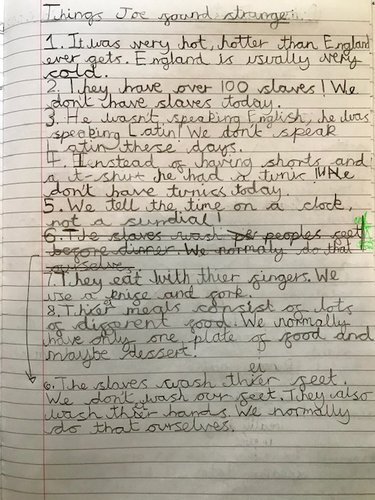 Things Joe found strange:
1. It was very hot, hotter than England
ever gets. England is usually very
cold.
2. They have over 100 slaves! We
don't have slaves today.
3. He wasn't speaking English, he was
speaking Latin! We don't speak
Latin these days.
4. Instead of having shorts and
a t-shirt he had a tunic! We
don't have tunics today.
5. We tell the time on a clock,
not a sundial!
6. The slaves wash peoples feet
before dinner. We normaly do that
ourselve.
7. They eat with thier fingers. We
use a knife and fork.
8. Their meals consist of lots
of different food. We normally
have only one plate of food and
maybe dessert!
ei
6. The slaves wash thier feet.
We don't wash our feet. They also
wash their hands. We normally
do that ourselves.